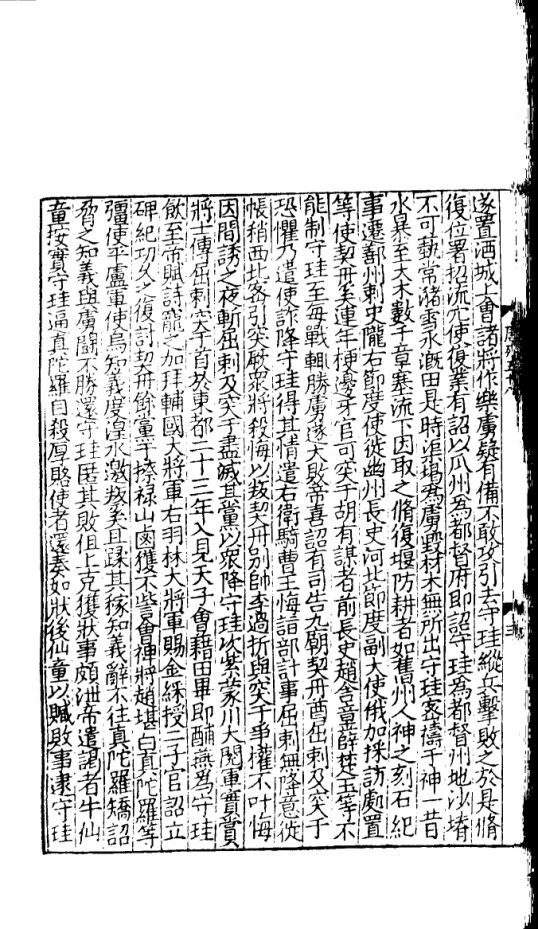 遂置酒城上會諸將作樂虜疑有備不敢攻引去守珪縱兵擊敗之於是脩
復位署招流冗使復業有詔以瓜州為都督府即詔守珪為都督州地沙塉
不可蓺常瀦雪水溉田是時渠堨為虜毀材木無所出守珪密禱于神一昔
水暴至大木數千章塞流下因取之脩復堰防耕者如舊州人神之刻石紀
事遷鄯州刺史隴右節度使徙幽州長史河北節度副大使俄加採訪處置
等使契丹奚連年梗邊牙官可突于胡有謀者前長史趙含章薛楚玉等不
能制守珪至每戰輒勝虜遂大敗帝喜詔有司告九廟契丹酋屈剌及突于
恐懼乃遣使詐降守珪得其情遣右衛騎曹王悔詣部計事屈剌無降意徙
帳稍西北密引突厥眾將殺悔以叛契丹別帥李過折與突于爭權不叶悔
因間誘之夜斬屈剌及突于盡滅其黨以眾降守珪次紫蒙川大閱軍實賞
將士傳屈剌突于首於東都二十三年入見天子會藉田畢即酺燕為守珪
飲至帝賦詩寵之加拜輔國大將軍右羽林大將軍賜金綵授二子官詔立
碑紀功久之復討契丹餘黨于捺祿山鹵獲不訾會裨將趙堪白真陀羅等
彊使平盧軍使烏知義度湟水邀叛奚且蹂其稼知義辭不往真陀羅矯詔
脅之知義與虜鬬不勝還守珪匿其敗但上克獲狀事頗泄帝遣謁者牛仙
童按實守珪逼真陀羅自殺厚賂使者還奏如狀後仙童以贓敗事逮守珪